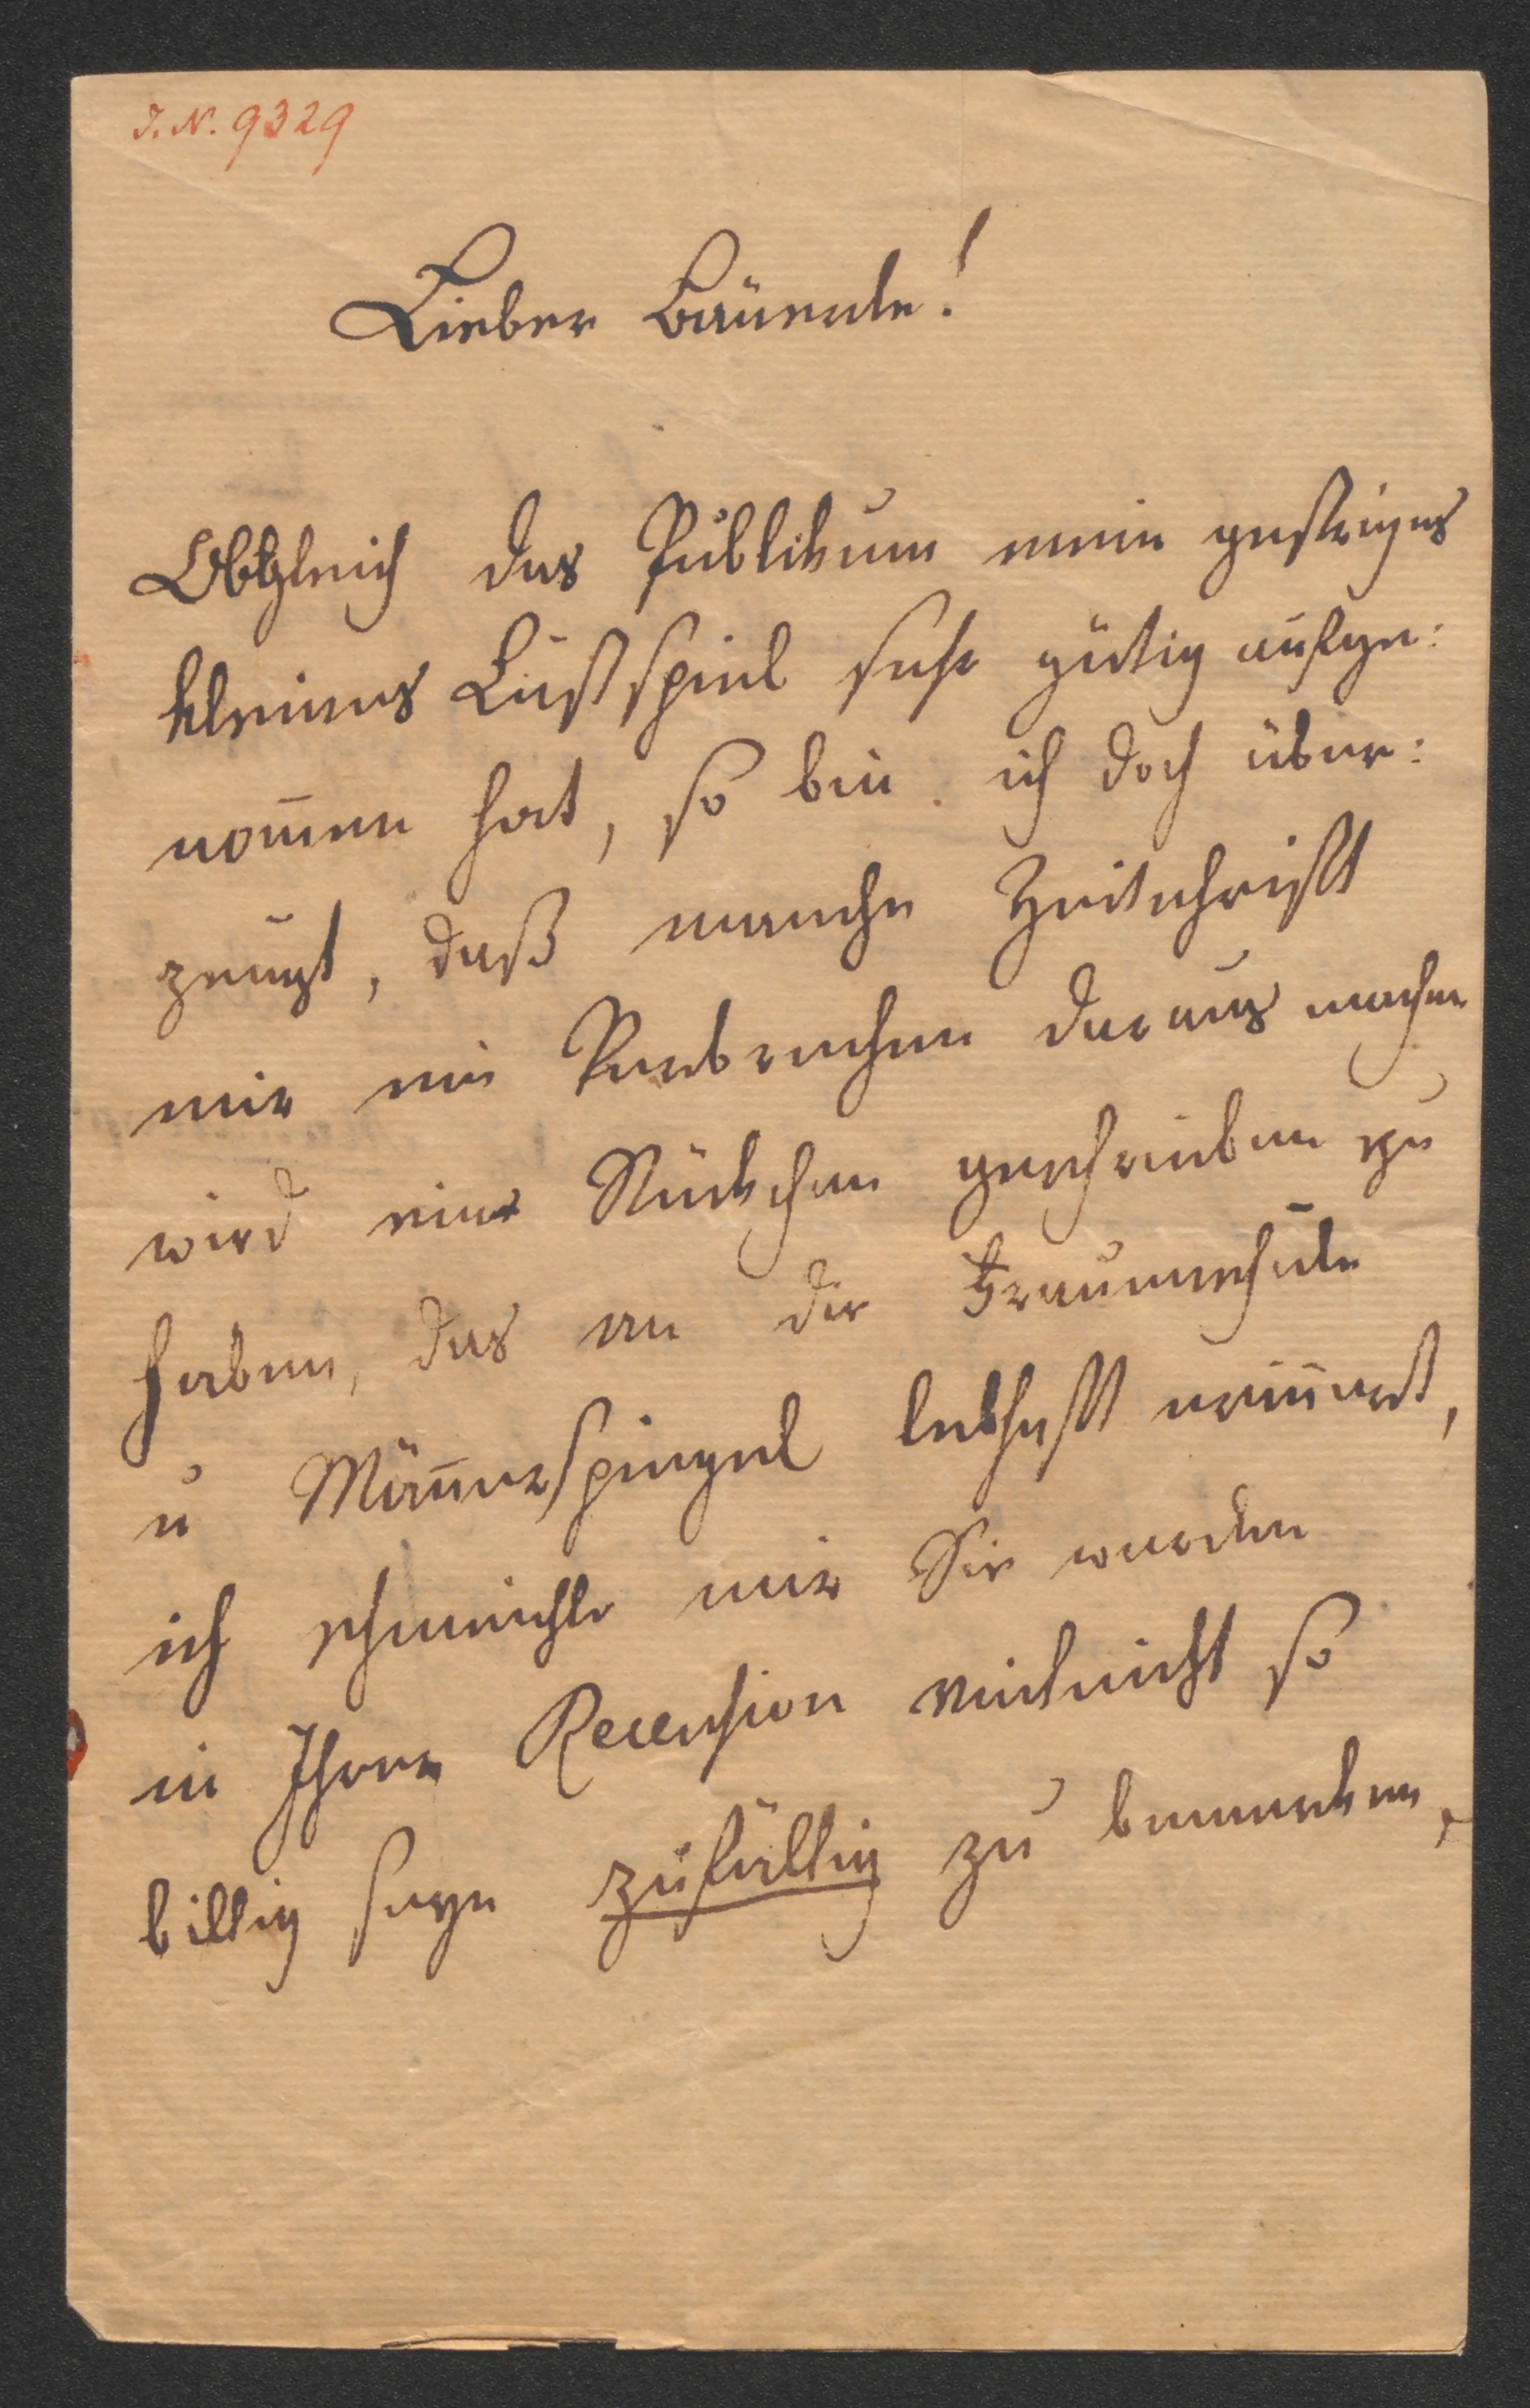 I. N. 9329
Lieber Bäuerle!
Obgleich das Publikum mein gestriges
kleines Lustspiel sehr gütig aufge:
nom̄en hat, so bin ich doch über:
zeugt, daß manche Zeitschrift
mir ein Verbrechen daraus machen
wird eine Stückchen geschrieben zu
haben, das an die Frauenschule
u Män̄erspiegel lebhaft erin̄ert,
ich schmeichle mir Sie werden
in Ihrer Recension vielleicht so
billig seyn zufällig zu bemerken,